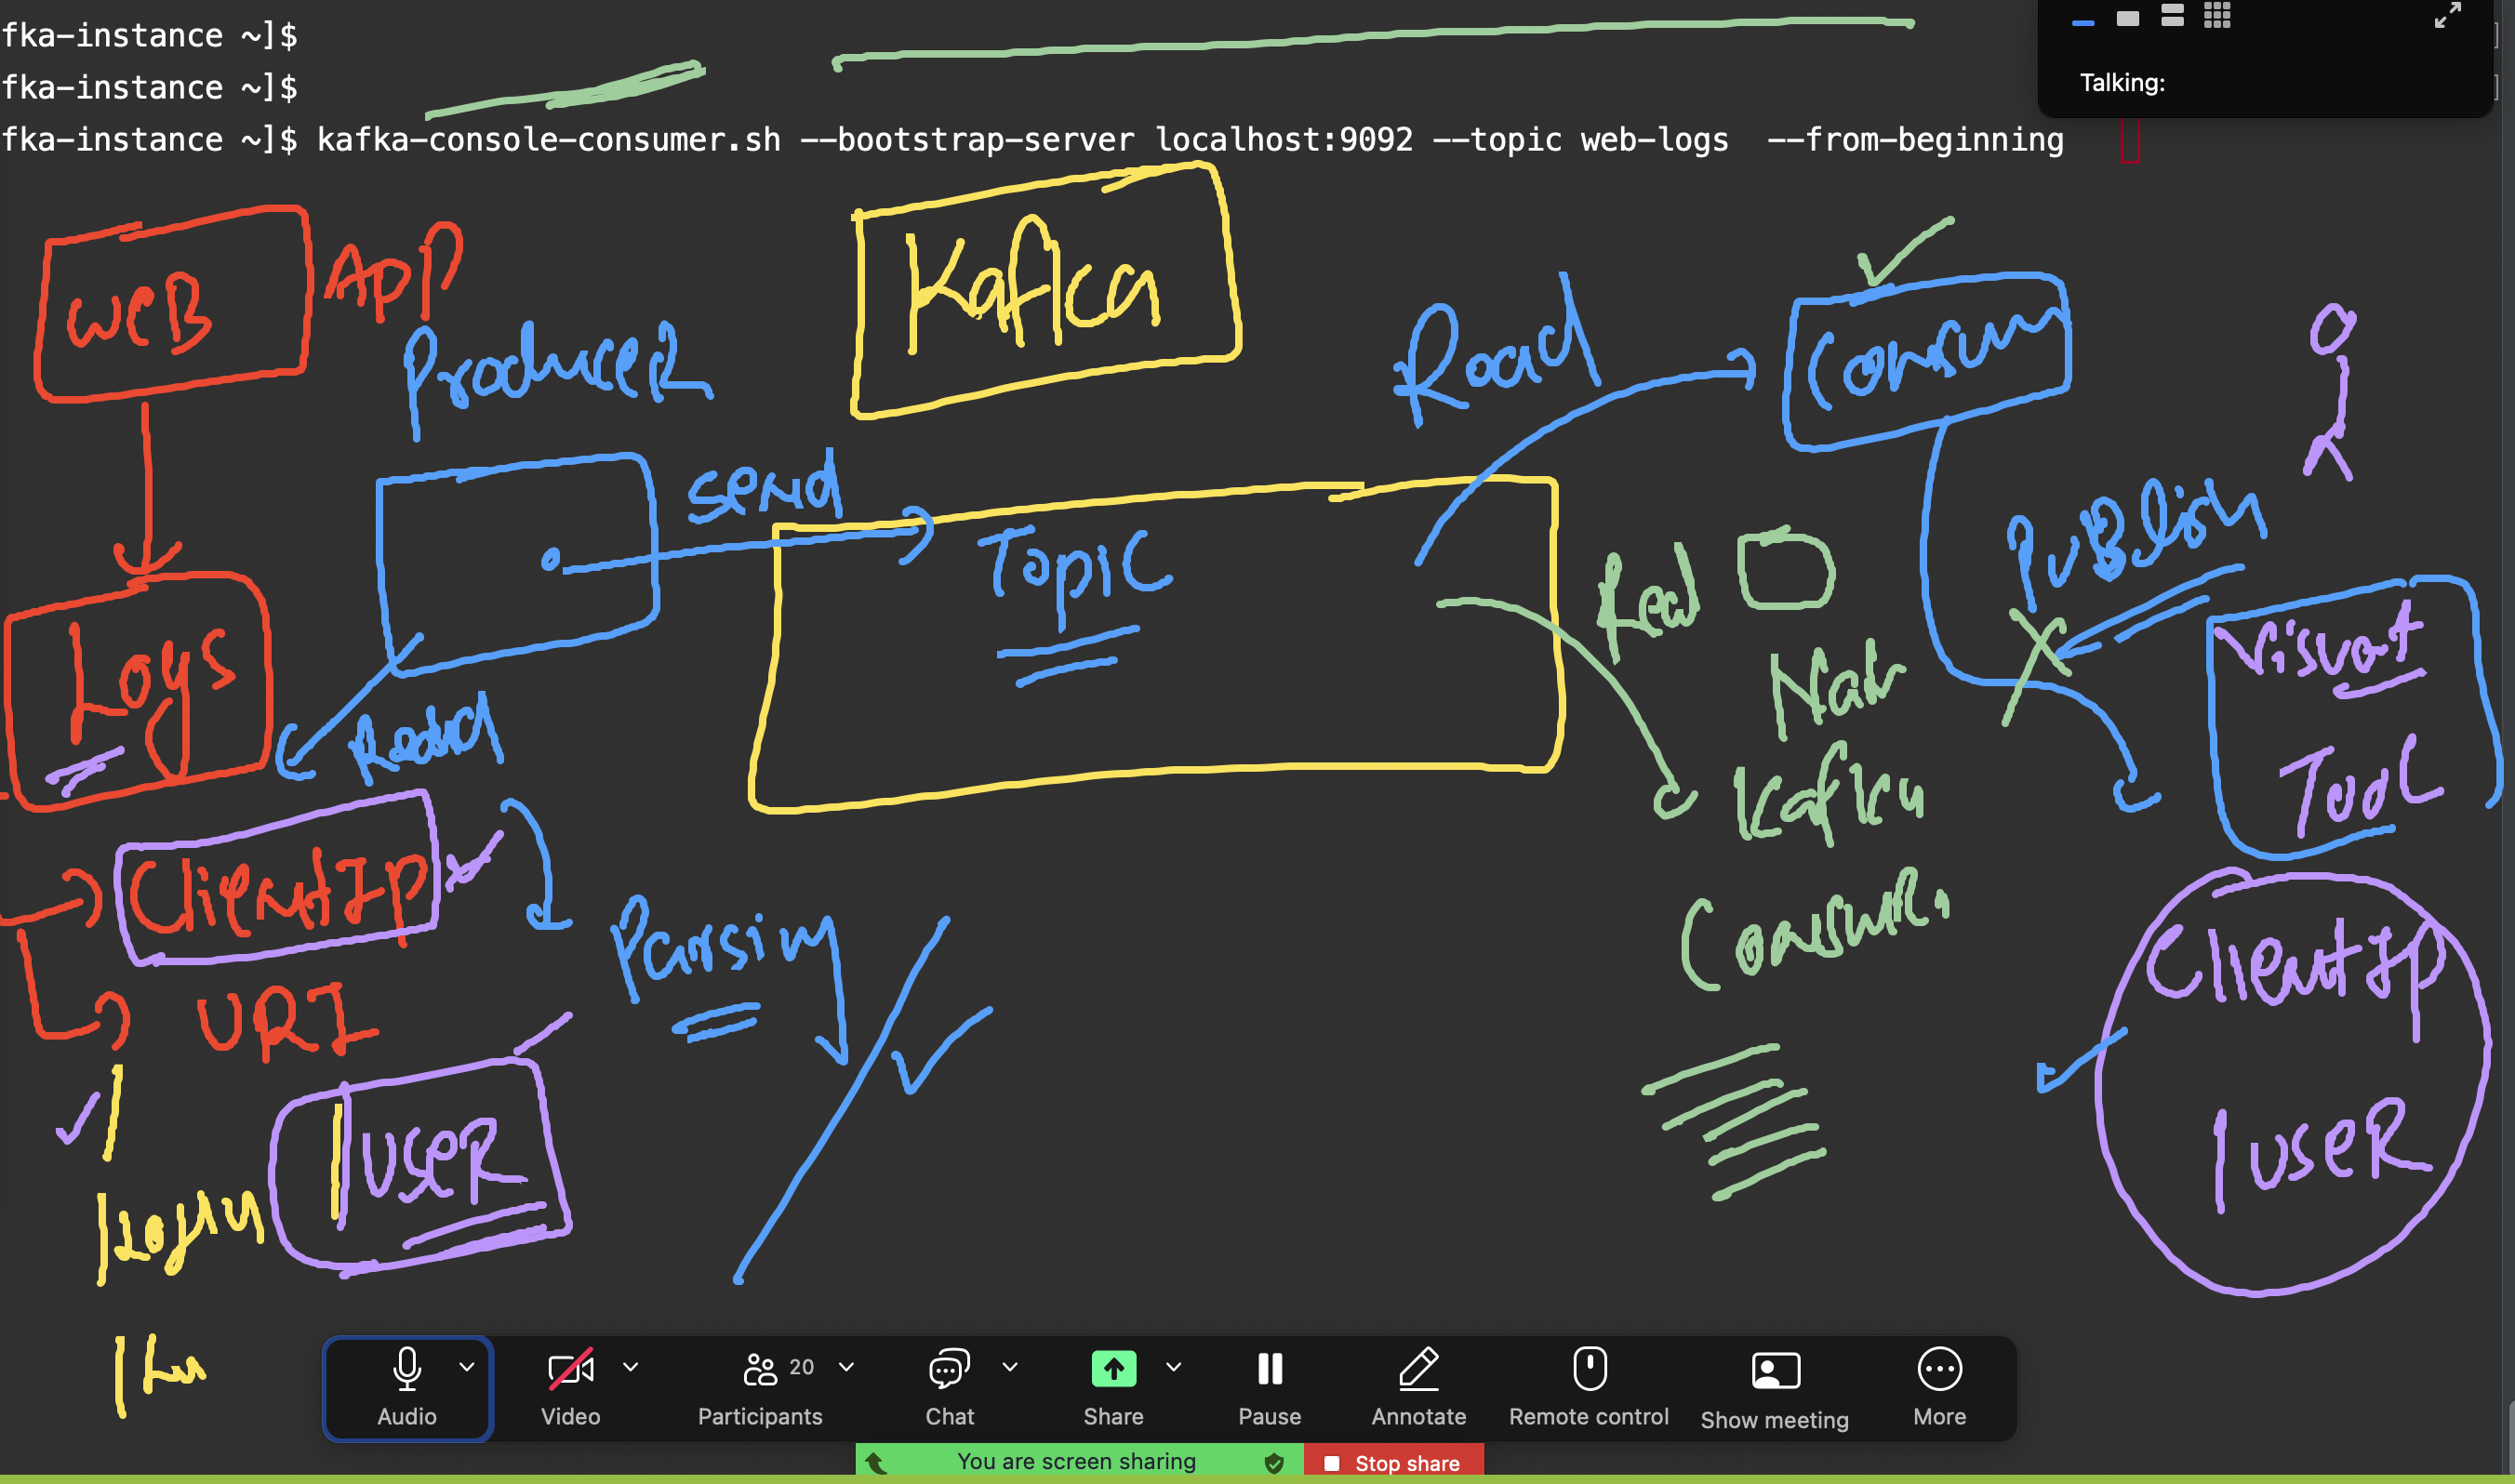 fka-instance ~]$
fka-instance ~]$
fka-instance ~]$ kafka-console-consumer.sh --bootstrap-server localhost:9092 --topic web-logs  --from-beginning
Talking:
WEB
APP
Kafka
Producer
Read
Consum
send
Topic
Publish
Logs
Read
Read
Not
Kafka
Consumer
Visual
Tool
ClientIP
Parsing
URI
/
/USER
/Login
ClientIP
/USER
Audio
Video
Participants 20
Chat
Share
Pause
Annotate
Remote control
Show meeting
More
You are screen sharing
Stop share